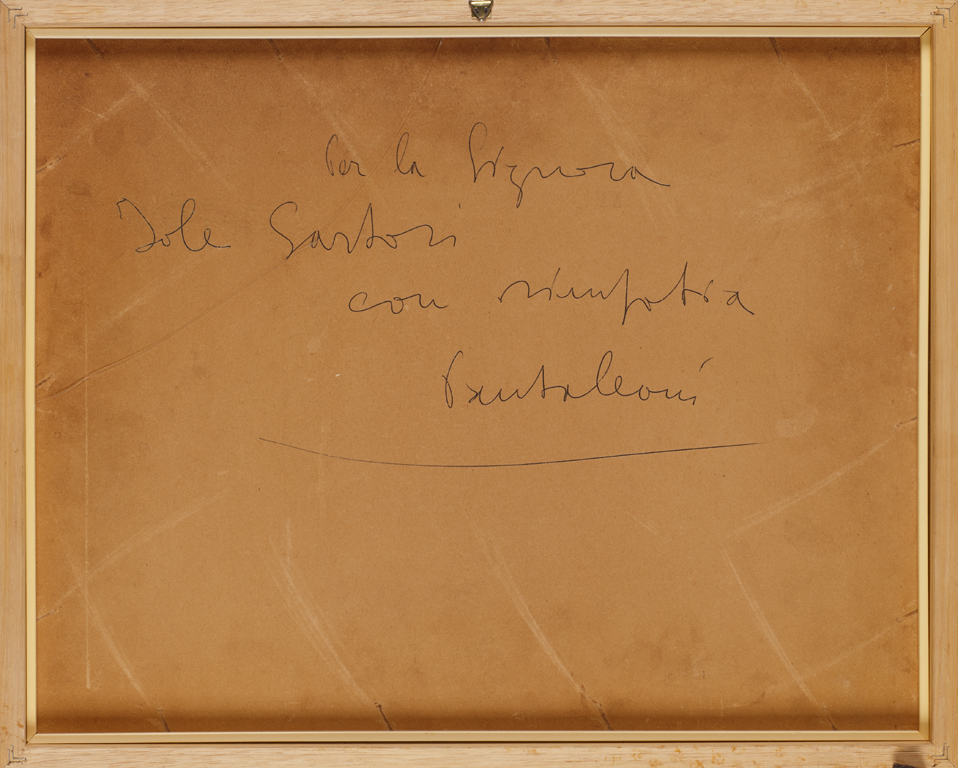 Per la Signora
Iole Sartori
con simpatia
Pantaleoni